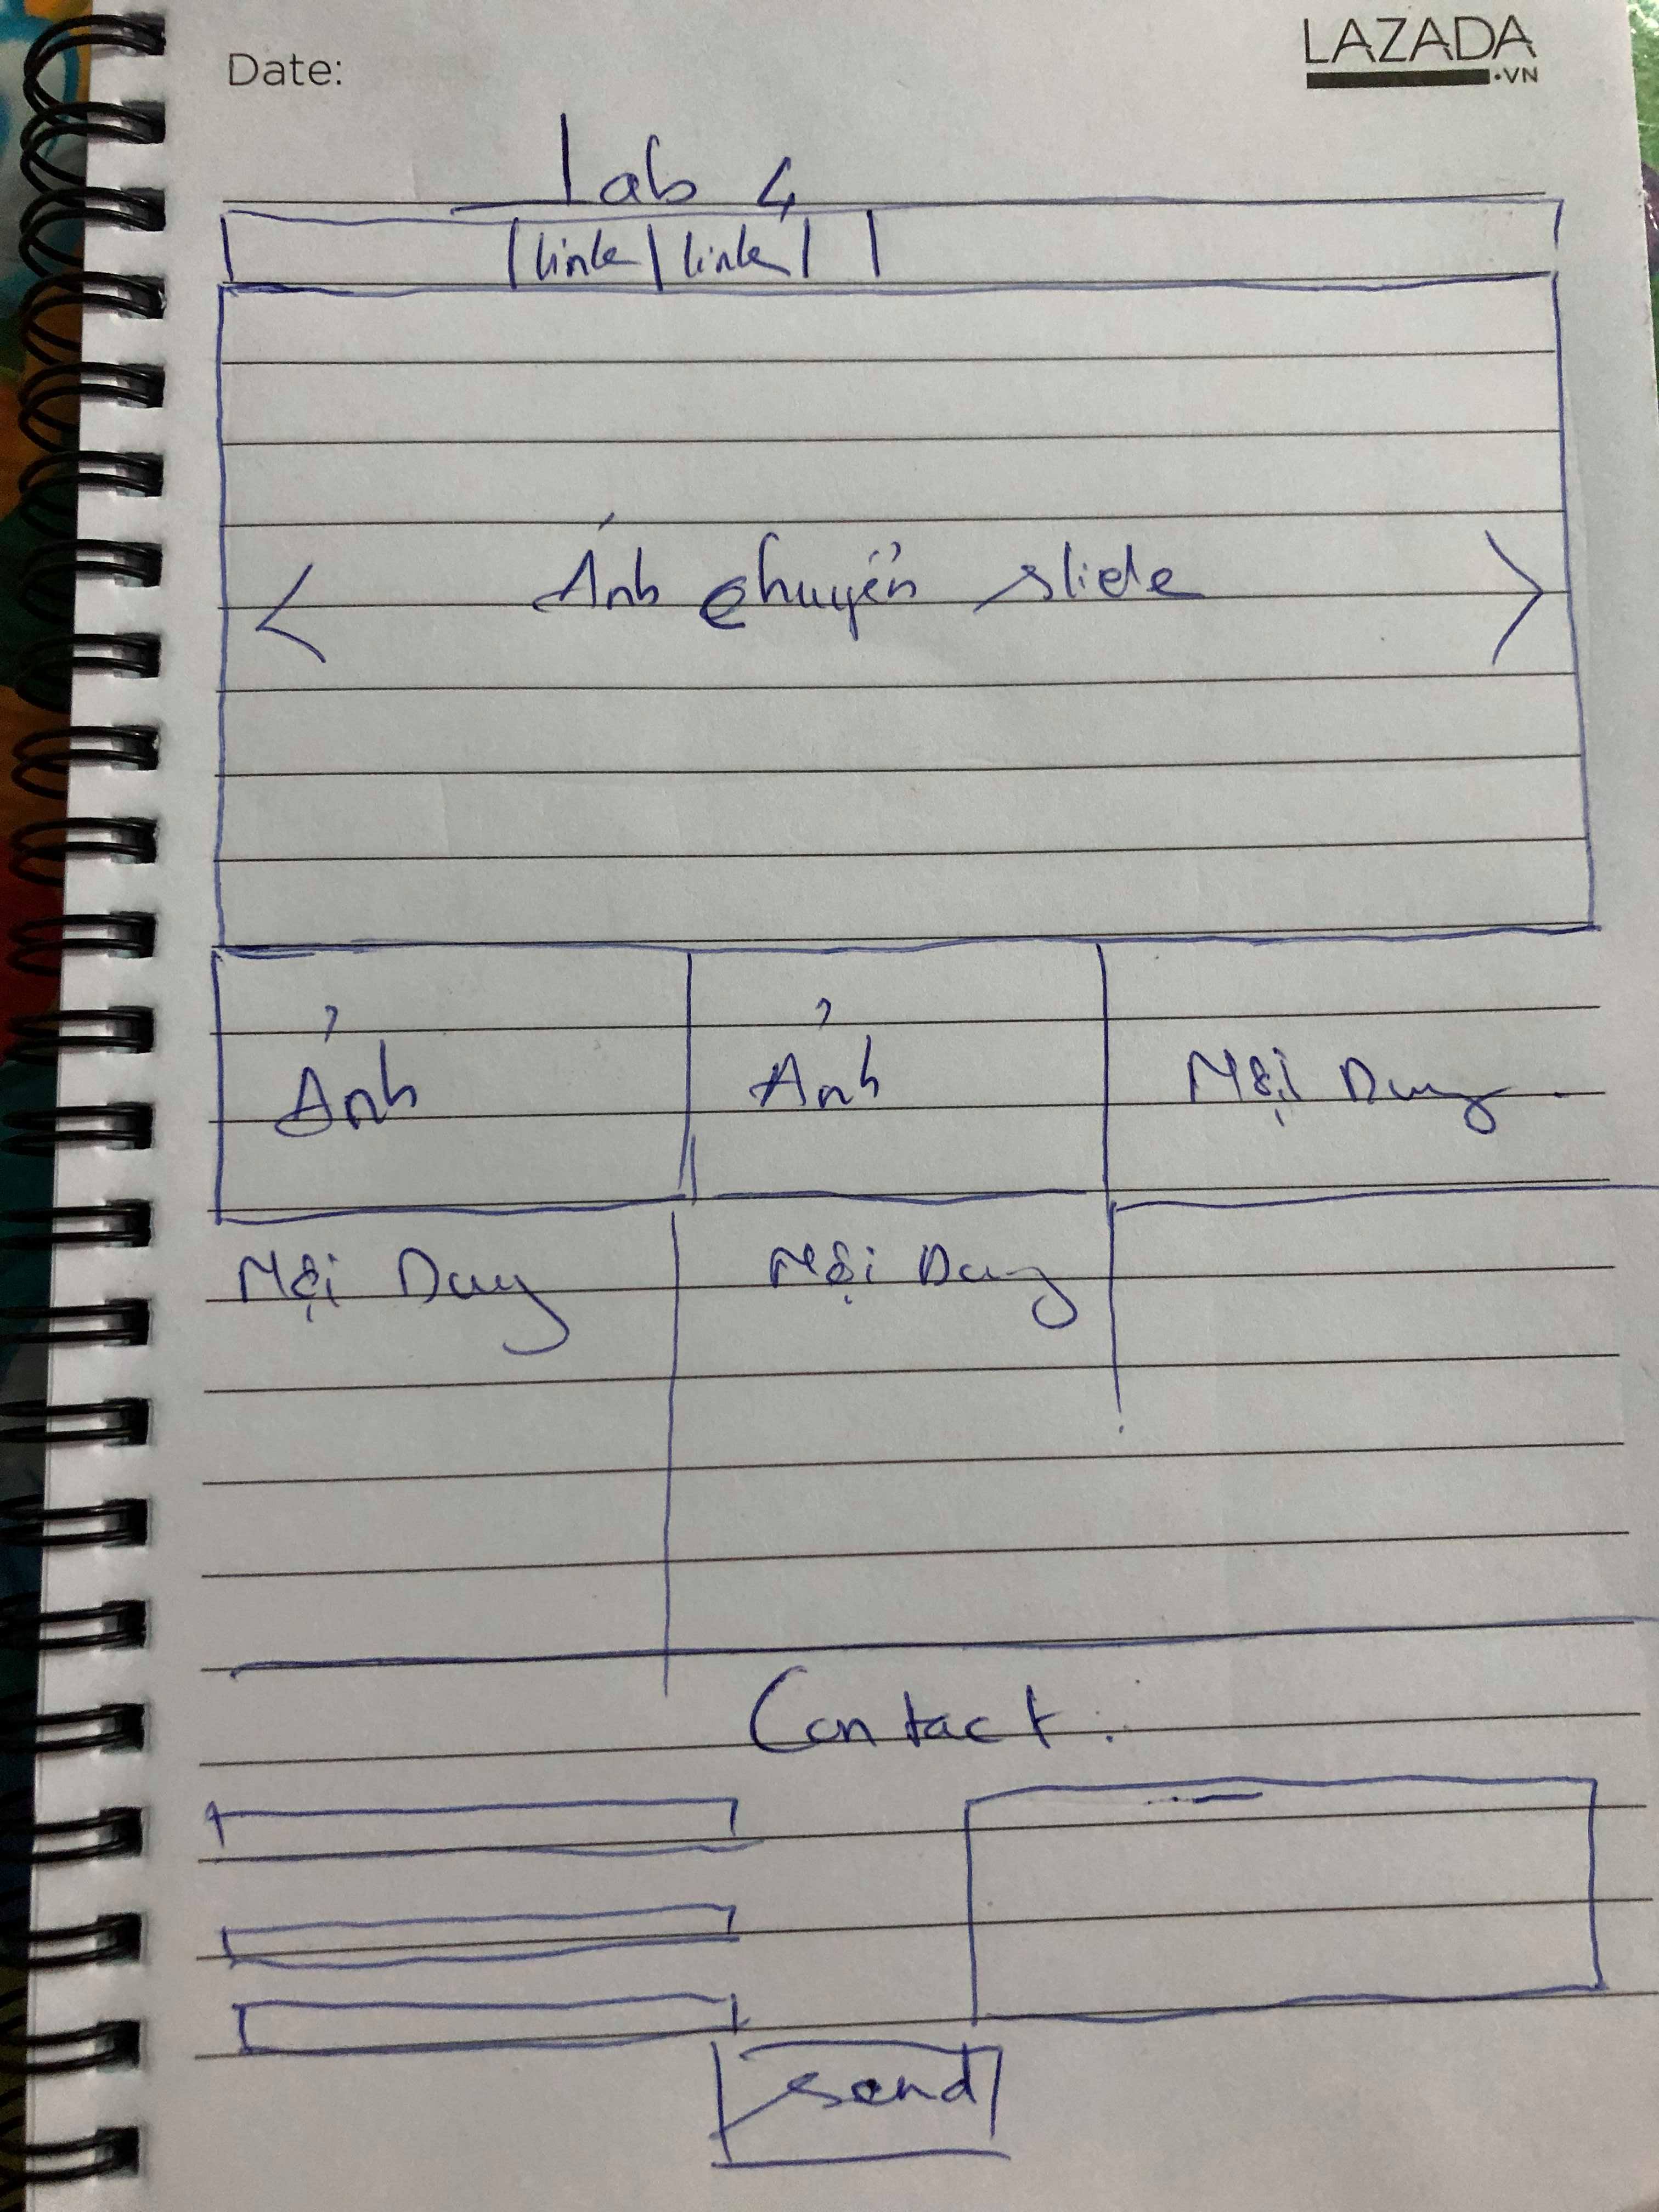 Date:
LAZADA
.VN
Lab 4
link link
< Ảnh chuyển slide >
Ảnh Ảnh Nội Dung.
Nội Dung Nội Dung
Contact:
send